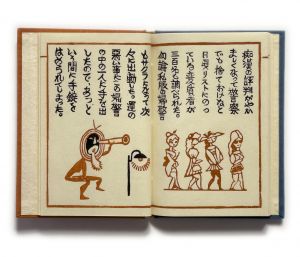 痴漢の評判がやか
ましくなって遊警察
でも捨ておけなくと
日夜リストにのっ
ている変質者が
三百名と調べられた。
勿論私服の婦警
もサクラになって次
々に出動した。運の
悪い事にこの婦警
の中の一人に手を出
したので、あっと
いう間に手錠を
はめられてしまった。